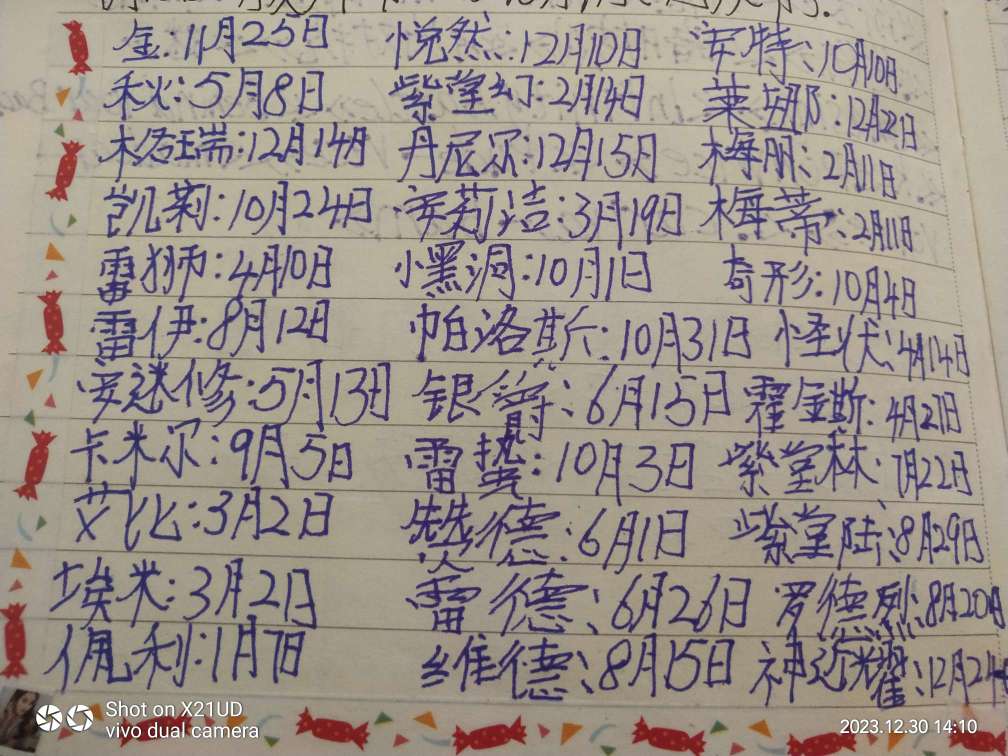 金:11月25日 悦然:12月10日 安特:10月10日
秋:5月8日 紫堂幻:2月14日 莱娜:12月22日
格瑞:12月14日 丹尼尔:12月15日 梅朋:2月11日
凯莉:10月24日 安莉洁:3月19日 梅蒂:2月11日
雷狮:4月10日 小黑洞:10月1日 奇形:10月4日
雷伊:8月12日 帕洛斯:10月31日 怪状:4月14日
安迷修:5月13日 银爵:6月15日 霍金斯:4月27日
卡米尔:9月5日 雷蛰:10月3日 紫堂林:7月22日
艾比:3月2日 赞德:6月1日 紫堂陆:8月29日
埃米:3月2日 雷德:6月26日 罗德烈:8月20日
佩利:1月7日 维德:8月15日 神近耀:12月24日
Shot on X21UD
vivo dual camera
2023.12.30 14:10